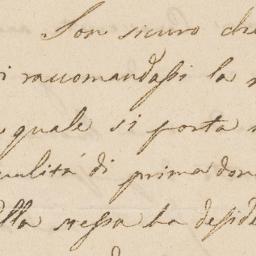 Son sicuro che
i raccomandassi la
quale si porta
ualità di prima don
lla stessa ha deside